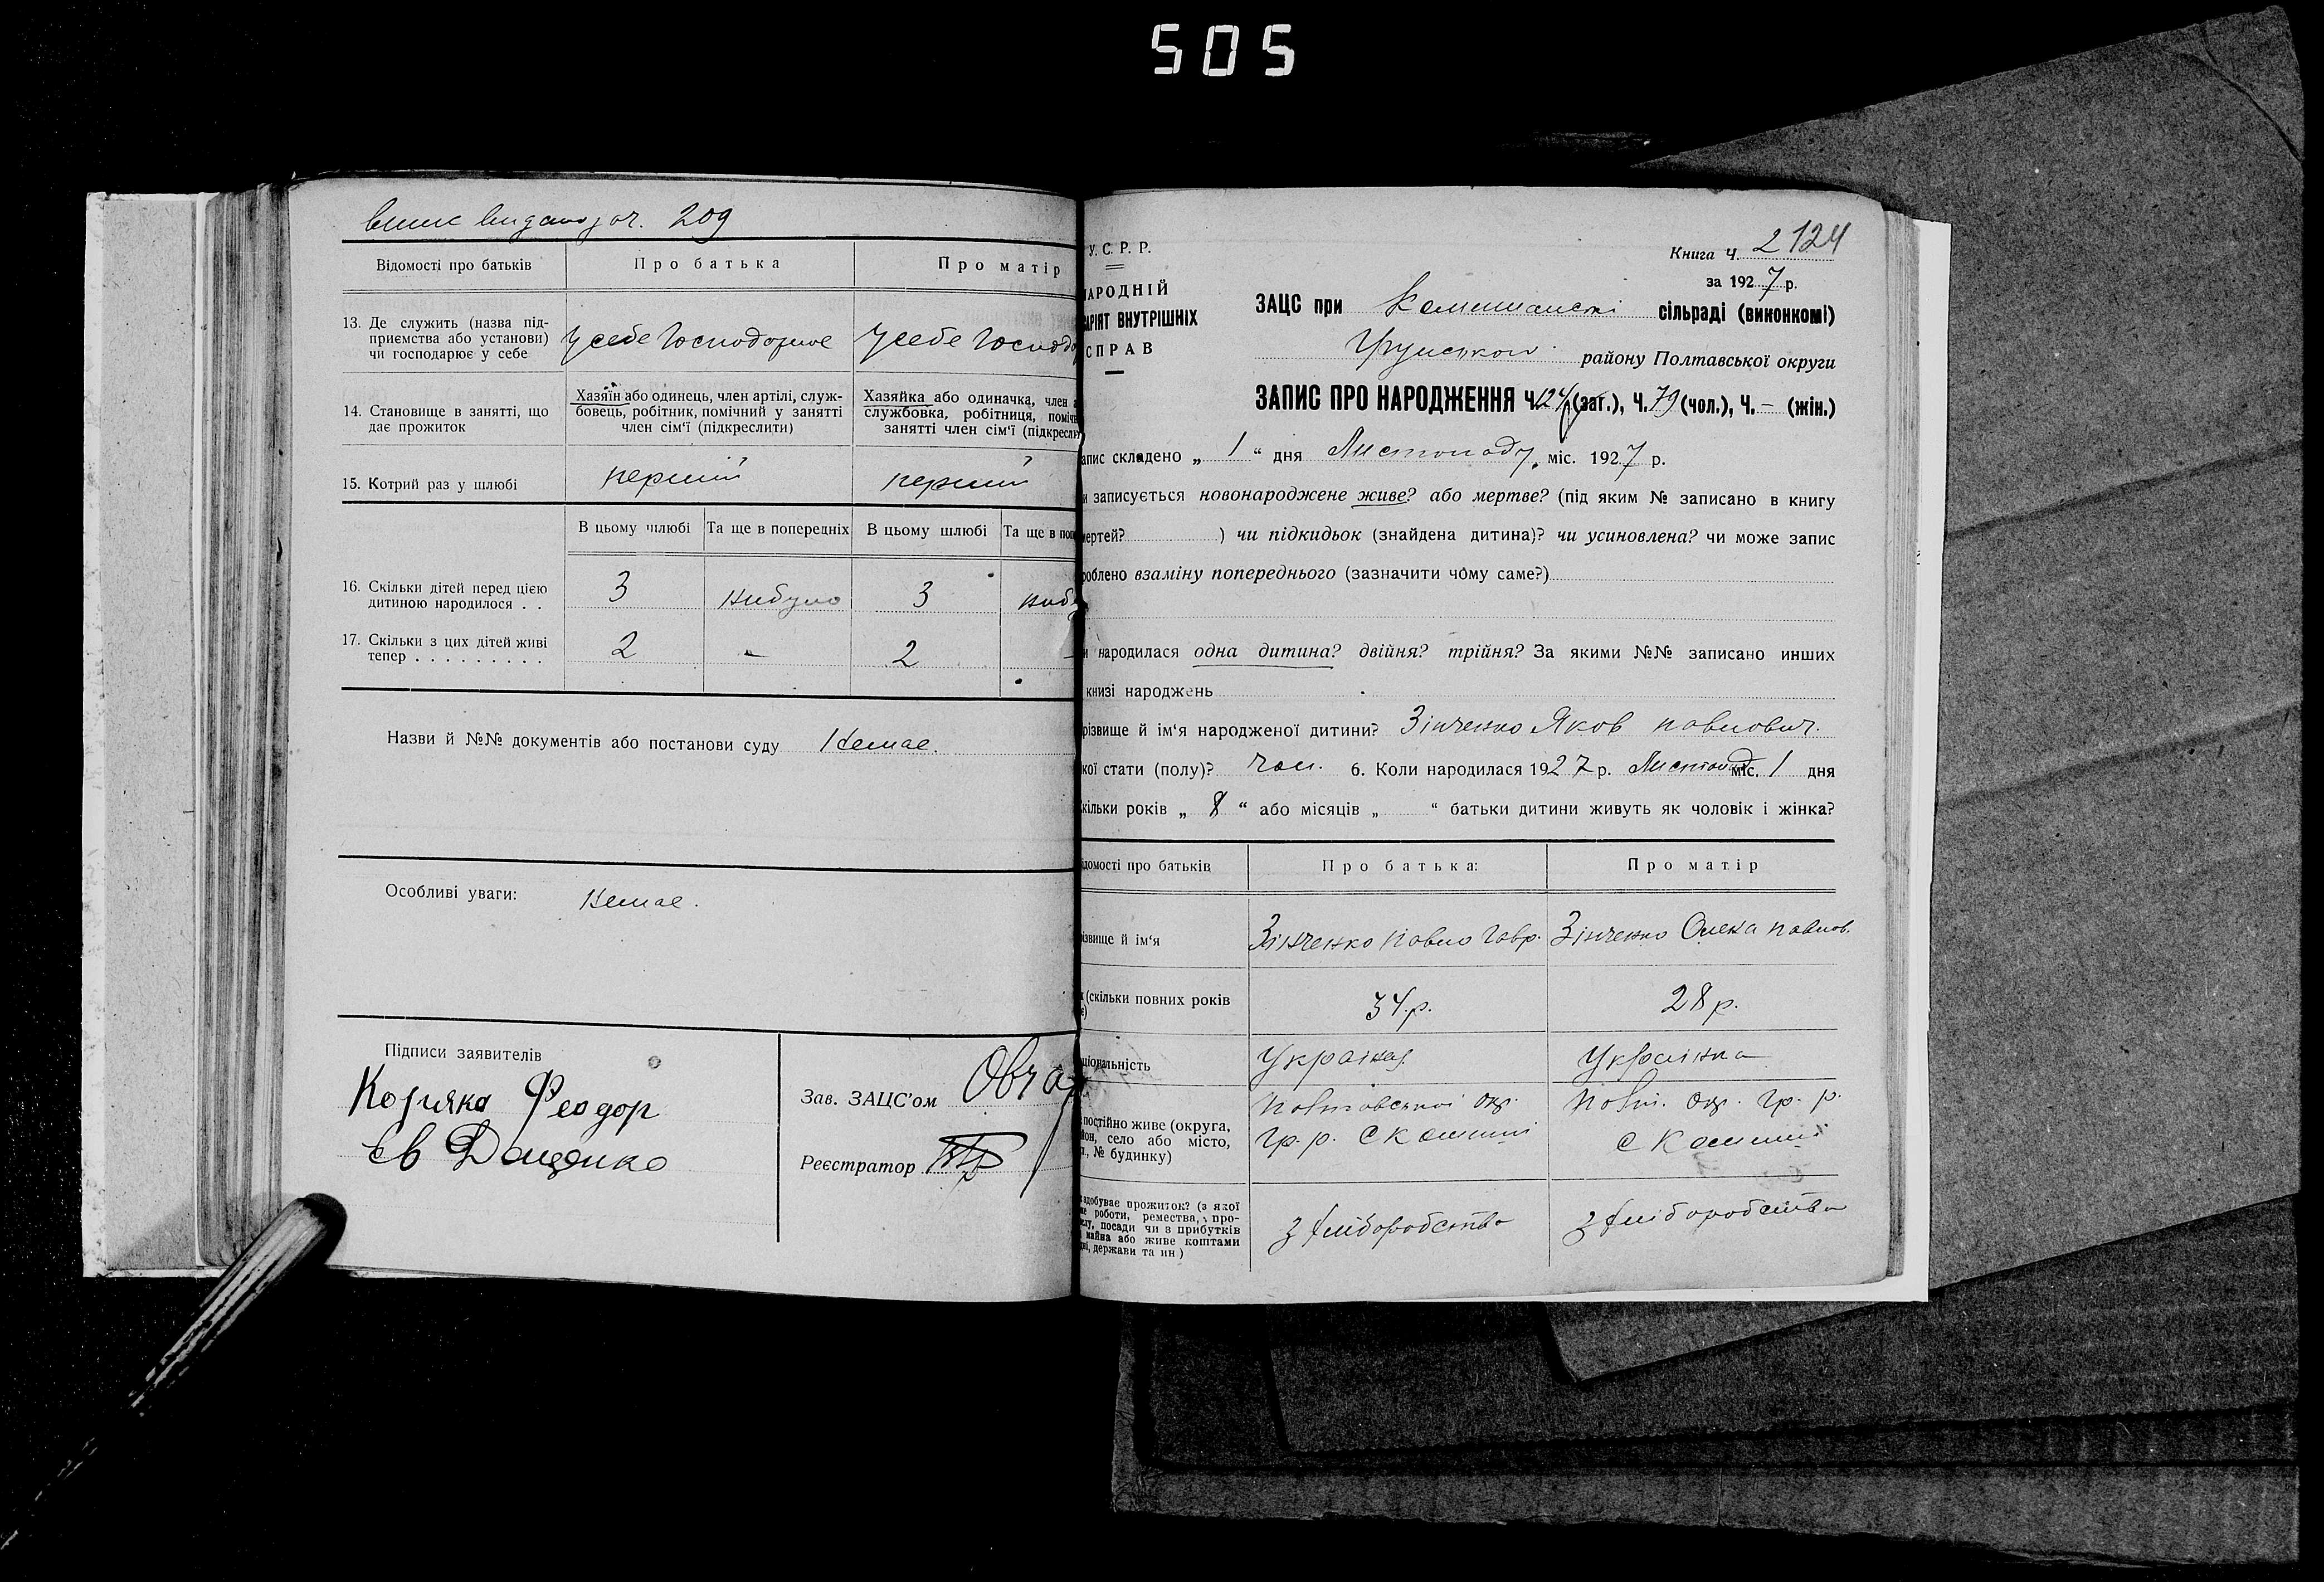 505
видано 209
Відомості про батьків
Про батька
Про матір
13. Де служить (назва під-
приємства або установи)
чи господарює у себе
у себе
у себе
14. Становище в занятті, що
дає прожиток
Хазяїн або одинець, член артілі, служ-
бовець, робітник, помічний у занятті
член сім'ї (підкреслити)
Хазяйка або одиначка, член а
службовка, робітниця, поміч
занятті член сім'ї (підкресли
15. Котрий раз у шлюбі
перший
перший
В цьому шлюбі
Та ще в попередніх
В цьому шлюбі
Та ще в поп
16. Скільки дітей перед цією
дитиною народилося . .
3
небуло
3
небу
17. Скільки з цих дітей живі
тепер . . . . . . . . .
2
–
2
–
Назви й №№ документів або постанови суду Немає.
Особливі уваги: Немає.
Підписи заявителів
Федор
Єв Даценко
Зав. ЗАЦС'ом Овча
Реєстратор
У. С. Р. Р.
НАРОДНІЙ
АРІЯТ ВНУТРІШНІХ
СПРАВ
Книга Ч. 2 124
за 1927 р.
ЗАЦС при сільраді (виконкомі)
району Полтавської округи
ЗАПИС ПРО НАРОДЖЕННЯ Ч. 124 (заг.), Ч. 79 (чол.), Ч. – (жін.)
апис складено „ 1 “ дня Листопаду міс. 1927 р.
и записується новонароджене живе? або мертве? (під яким № записано в книгу
мертей? ) чи підкидьок (знайдена дитина)? чи усиновлена? чи може запис
роблено взаміну попереднього (зазначити чому саме?)
и народилася одна дитина? двійня? трійня? За якими №№ записано инших
книзі народжень
різвище й ім'я народженої дитини? Зінченко Яков Павлович.
кої стати (полу)? чол. 6. Коли народилася 1927 р. Листопад міс. 1 дня
кільки років „ 8 “ або місяців „ “ батьки дитини живуть як чоловік і жінка?
ідомості про батьків
Про батька:
Про матір
ізвище й ім'я
Зінченко Павло Гавр.
Зінченко Олена Павлов.
(скільки повних років
34 р.
28 р.
ціональність
Українка
постійно живе (округа,
йон, село або місто,
., № будинку)
Полтавської окр.
гр. р. с
Полт. окр. гр. р.
с
здобуває прожиток? (з якої
ме роботи, ремества, про-
слу, посади чи з прибутків
майна або живе коштами
ні, держави та ин)
з хліборобства
з хліборобства